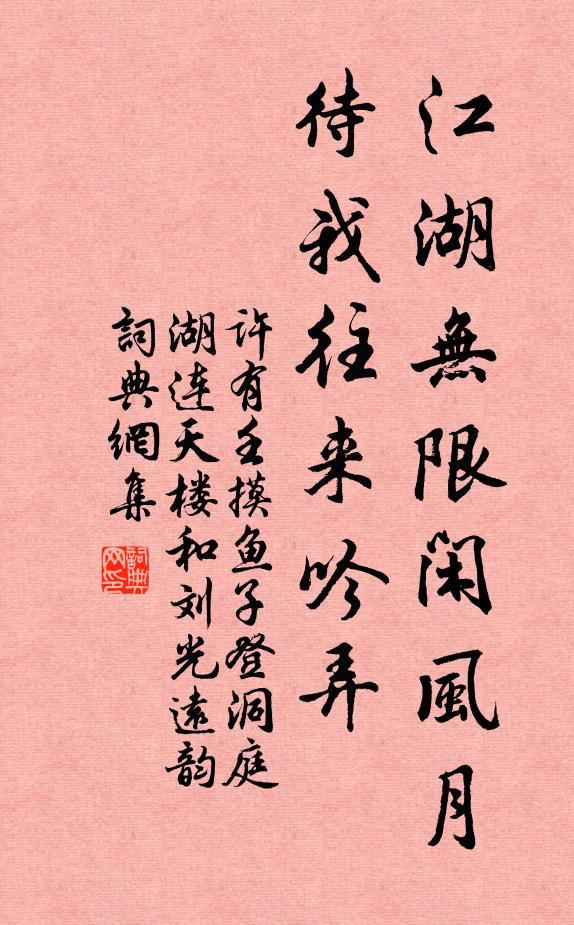 江湖無限閑風月
待我往来吟弄
许有壬摸鱼子登洞庭
湖连天楼和刘光遠韵
詞典網集
詞典网印